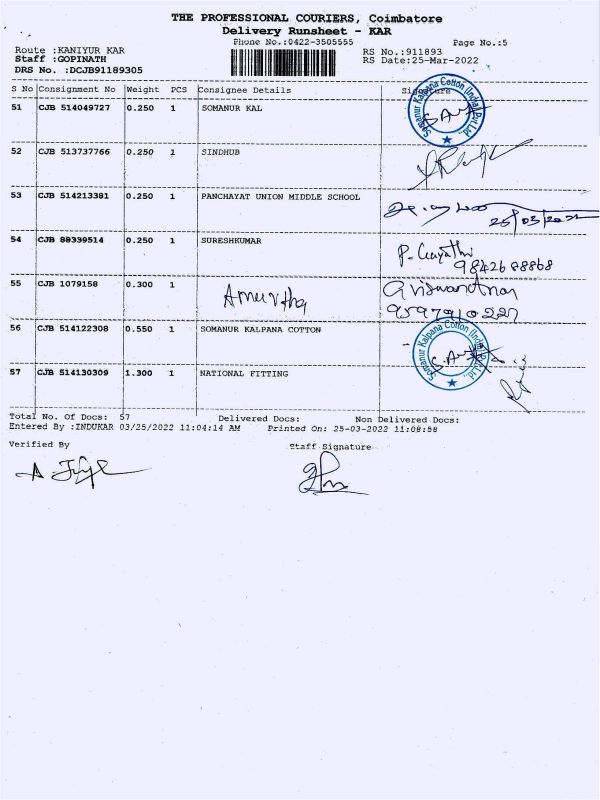 THE PROFESSIONAL COURIERS, Coimbatore
Delivery Runsheet - KAR
Phone No.:0422-3505555
Page No.:5
Route :KANIYUR KAR
RS No.:911893
Staff :GOPINATH
RS Date:25-Mar-2022
DRS No. :DCJB91189305
S No Consignment No Weight PCS Consignee Details Signature
51 CJB 514049727 0.250 1 SOMANUR KAL
Somanur Kalpana Cotton (India) Pvt Ltd.,
52 CJB 513737766 0.250 1 SINDHUB
53 CJB 514213381 0.250 1 PANCHAYAT UNION MIDDLE SCHOOL
25/03/2022
54 CJB 88339514 0.250 1 SURESHKUMAR
P. Gayathri
9842688868
55 CJB 1079158 0.300 1 Amurtha
9597910227
56 CJB 514122308 0.550 1 SOMANUR KALPANA COTTON
Somanur Kalpana Cotton (India) Pvt Ltd.,
57 CJB 514130309 1.300 1 NATIONAL FITTING
Total No. Of Docs: 57 Delivered Docs: Non Delivered Docs:
Entered By :INDUKAR 03/25/2022 11:04:14 AM Printed On: 25-03-2022 11:08:58
Verified By Staff Signature